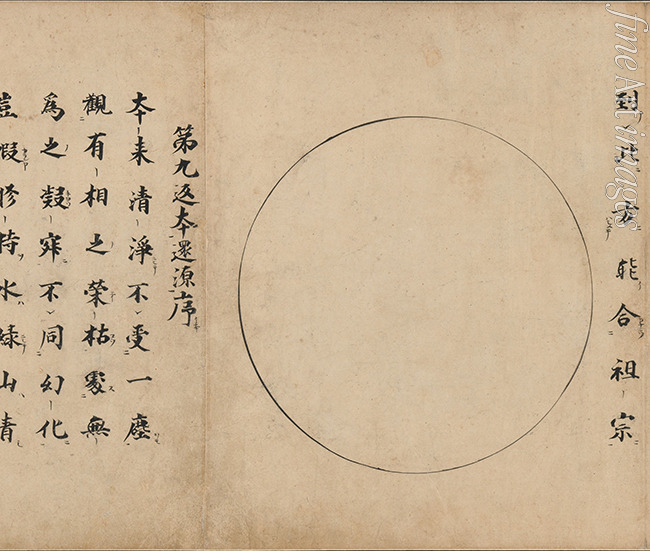 到此方能合祖宗
第九返本還源序
本来清淨不受一塵
觀有相之榮枯處無
爲之凝寂不同幻化
豈假修持水緑山青
fineArtimages